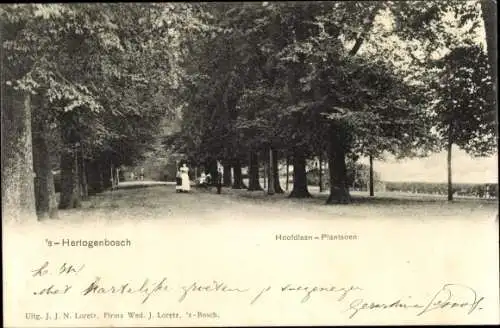 's-Hertogenbosch
Hoofdlaan - Plantsoen
L. M.
met hartelijke groeten
Uitg. J. J. N. Loretz, Firma Wed. J. Loretz, 's-Bosch.